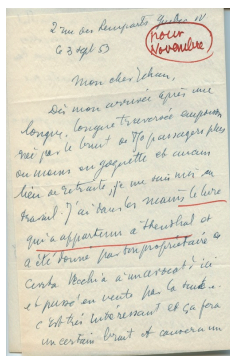 2 rue des Remparts Québec IV
pour
Novembre
Ce 3 sept 53
Mon cher Jehan,
Dès mon arrivée après une
longue, longue traversée
par le bruit de 770 passagers plus
ou moins en goguette et aucun
lieu de retraite, je me suis mis au
travail. J'ai dans les mains le livre
qui a appartenu à Stendhal et
a été donné par son propriétaire de
Civita Vecchia à un avocat d'ici
et passé en vente par la suite.
C'est très intéressant et ça fera
un certain bruit et